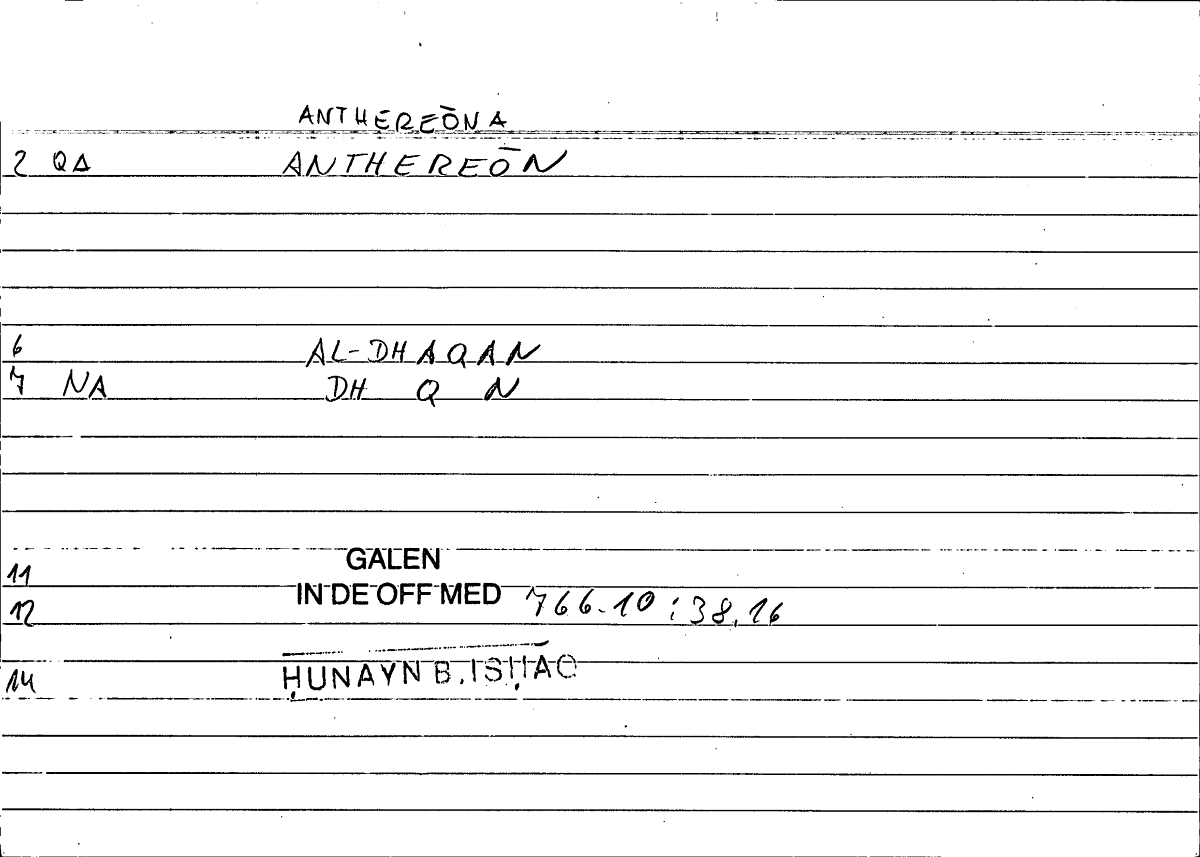 ANTHEREŌNA
2 QA ANTHEREŌN
6 AL-DHAQAN
7 NA DH Q N
11 GALEN
12 IN DE OFF MED 766.10 : 38.16
14 ḤUNAYN B. ISḤĀQ